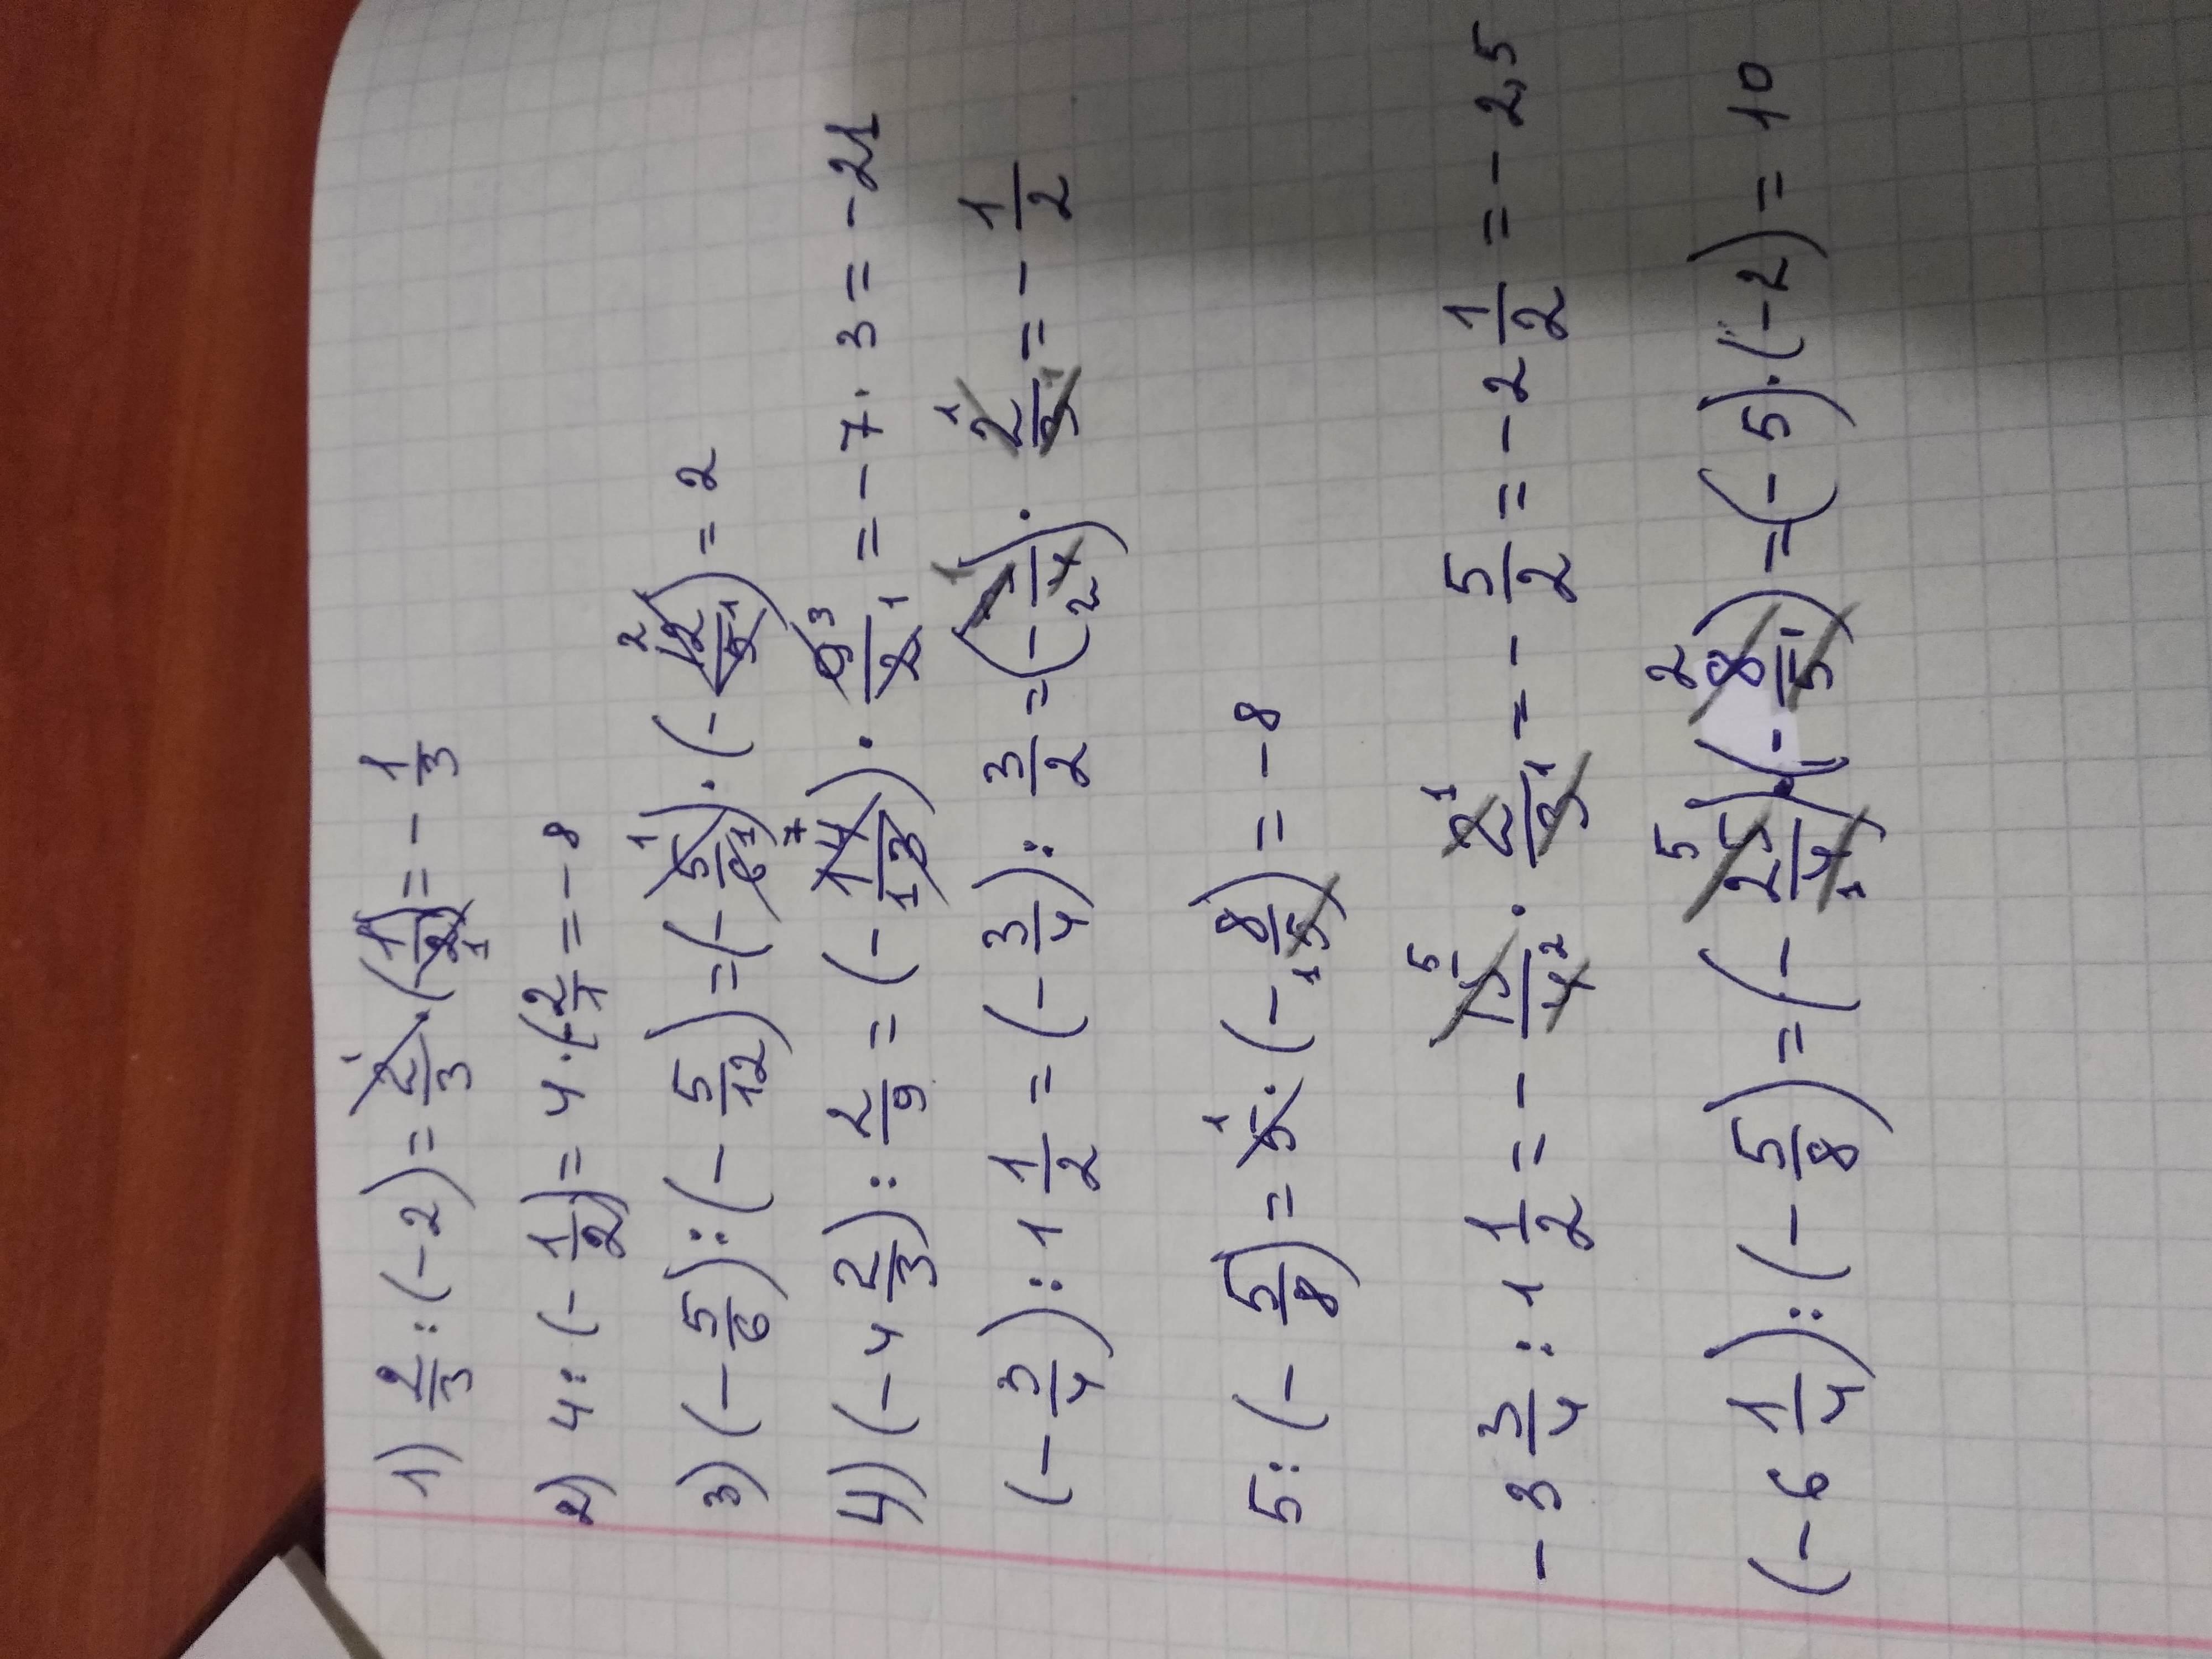 1) 2/3 : (-2) = 2/3 · (1/2) = - 1/3
2) 4 : (- 1/2) = 4 · (- 2/1 = - 8
3) (- 5/6) : (- 5/12) = (- 5/6) · (- 12/5) = 2
4) (- 4 2/3) : 2/9 = (- 14/3) · 9/2 = - 7 · 3 = - 21
(- 3/4) : 1 1/2 = (- 3/4) : 3/2 = (- 3/4) · 2/3 = - 1/2
5 : (- 5/8) = 5 · (- 8/5) = - 8
- 3 3/4 : 1 1/2 = - 15/4 · 2/3 = - 5/2 = - 2 1/2 = - 2,5
(- 6 1/4) : (- 5/8) = (- 25/4) · (- 8/5) = (- 5) · (- 2) = 10